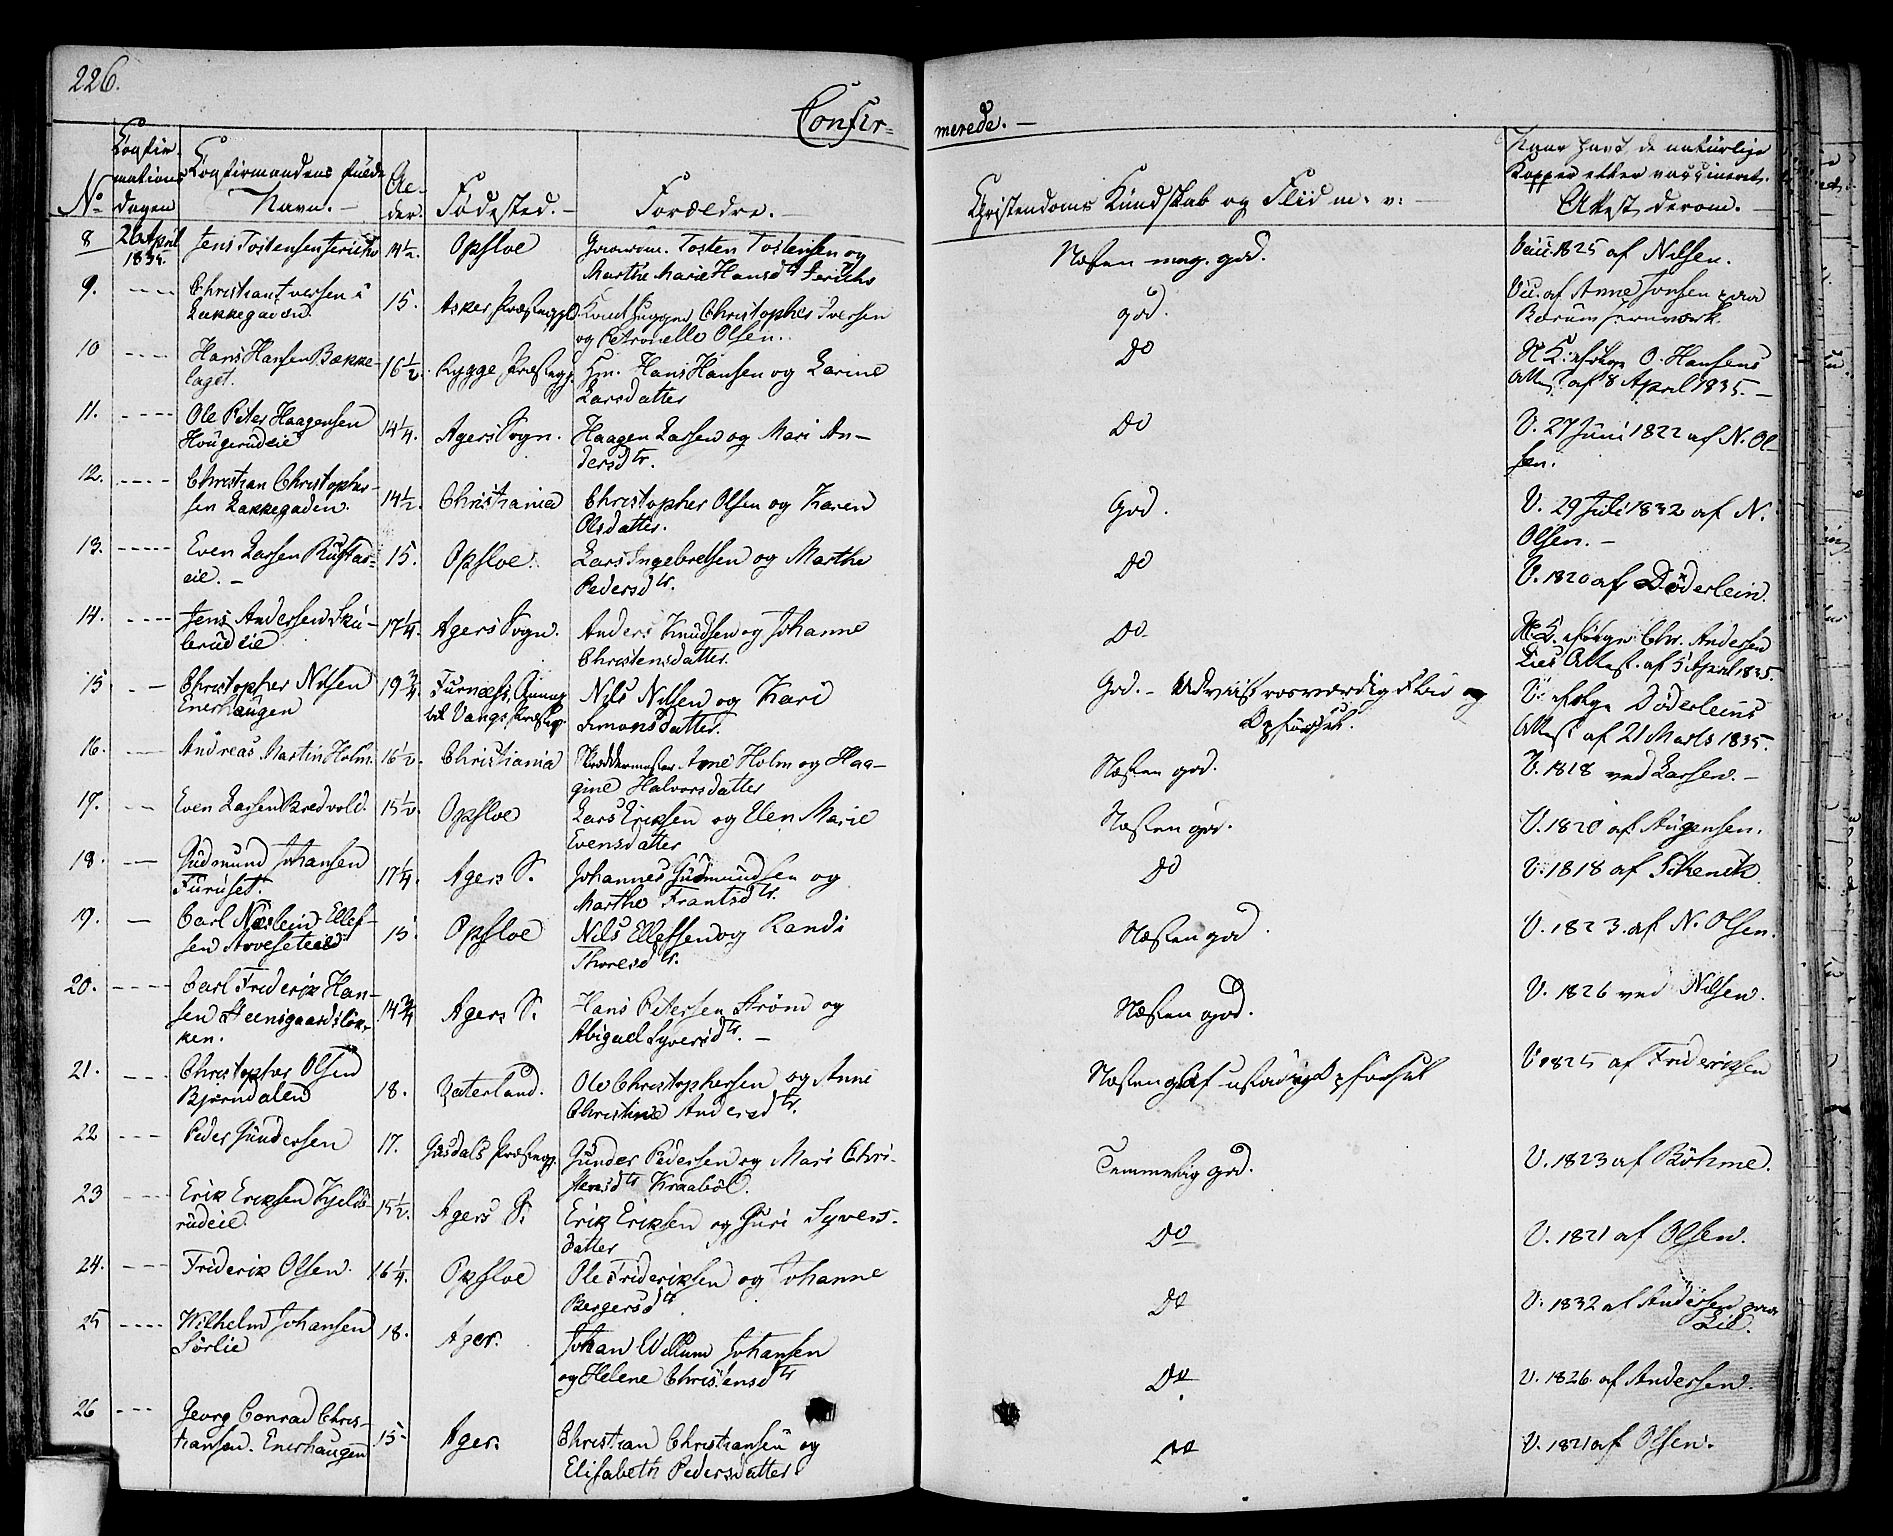 226.
Confir-
merede. -
No
Confir-
mations
dagen
Confirmandens fulde
Navn. -
Al-
der.
Fødested. -
Forældre. -
Christendoms Kundskab og Fliid m. v: -
Naar havt de naturlige
Kopper eller vaccineret.
Attest derom. -
8 26 April 1835. Jens Tostensen Jericho 14 1/2. Opsloe Tosten Tostensen og
Marthe Marie Hansdtr Jericho
Næsten meg. god. 1825 af Nilsen.
9. Christian Iversen i
Lakkegaden 15. Asker Præstegjd Christopher Iversen
og Petronelle Olsen.
god. af Anne Jonsen paa
Bærum Jernværk.
10 Hans Hansen Bække-
laget. 16 1/2. Rygge Præstegj. Hans Hansen og Larine
Larsdatter
Do O. Hansens
Attest af 8 April 1835. -
11. Ole Peter Haagensen
Hougerudeie 14 1/4. Agers Sogn. Haagen Larsen og Mari An-
dersdtr.
Do V. 27 Juni 1822 af N. Ol-
sen.
12. Christian Christopher-
sen Lakkegaden. 14 1/2. Christiania Christopher Olsen og Karen
Olsdatter.
God. V. 29 Juli 1832 af N.
Olsen. -
13. Even Larsen Rustad-
eie. - 15. Opsloe. Lars Ingebretsen og Marthe
Pedersdtr.
Do V. 1820 af Döderlein.
14. Jens Andersen Sku-
lerudeie 17 1/4. Agers Sogn. Anders Knudsen og Johanne
Christensdatter.
Do Chr. Andersen
Lies Attest. af 5 April 1835.
15 Christopher Nilsen
Enerhaugen 19 3/4 Furnæs, Annex
til Vangs Præstegj. Nils Nilsen og Kari
Simonsdatter.
God. - Udviist rosværdig Fliid og
Opførsel. V. ifølge Döderleins
Attest af 21 Marts 1835.
16. Andreas Martin Holm. 16 1/2. Christiania Skræddermester Arne Holm og Haa-
gine Halvorsdatter
Næsten god. V. 1818 ved Larsen. -
17. Even Larsen Bredvold. 15 1/2. Opsloe Lars Eriksen og Elen Marie
Evensdatter
Næsten god. V. 1820 af Augensen.
18. Gudmund Johansen
Furuset. 17 1/4. Agers S. Johannes Gudmundsen og
Marthe Frantsdtr.
Do V. 1818 af Schenck.
19. Carl Nærlein Ellef-
sen 15. Opsloe Nils Ellefsen og Randi
Thoresdtr.
Næsten god. V. 1823. af N. Olsen.
20. Carl Friderik Han-
sen Steensgaardsløk-
ken. 14 3/4 Agers S. Hans Petersen Strøm og
Abigael Syversdtr. -
Næsten god. V. 1826 ved Nilsen.
21. Christopher Olsen
Bjørndalen 18. Qæterland. Ole Christophersen og Anne
Christine Andersdtr.
Næsten god af ustadig Opførsel V. 1825 af Frideriksen
22 Peder Gundersen 17. Gusdals Præstegj. Gunder Pedersen og Mari Chri-
stensdtr Kraabøl.
Temmelig god. V. 1823 af Böhme.
23 Erik Eriksen Kjels-
rudeie. 15 1/2. Agers S. Erik Eriksen og Guri Syvers-
datter
Do V. 1821 af Olsen.
24. Friderik Olsen. 16 1/4. Opsloe Ole Frideriksen og Johanne
Bergersdtr.
Do V. 1832 af Andersen paa
Lie.
25 Wilhelm Johansen
Sørlie 18. Ager. Johan Willum Johansen
og Helene Christensdtr
Do. V. 1826. af Andersen.
26 Georg Conrad Chris-
tiansen. Enerhaugen 15 Ager. Christian Christiansen og
Elisabeth Pedersdatter
Do V. 1821 af Olsen.